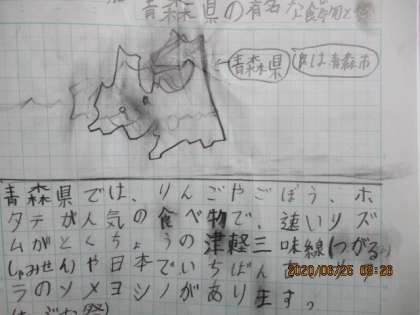 青森県の有名な食
青森県
は青森市
青森県では、りんごやごぼう、ホ
タテが人気の食べ物で、速いリズ
ムがとくちょうの津軽三味線(つがる
しゃみせん)や日本でいちばん
2020/06/26
ラのソメヨシノがあります。